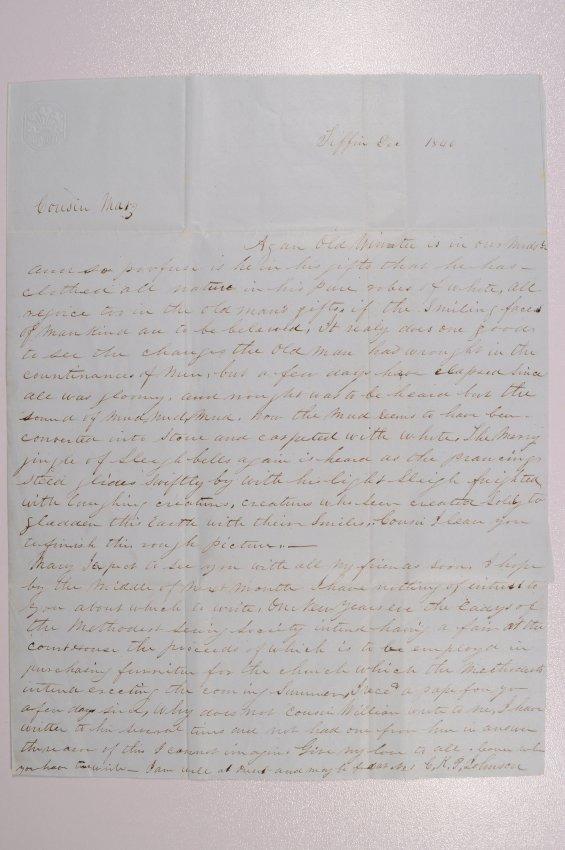 Tiffin Dec 1846
Cousin Mary
Again Old Winter is in our Midst
and so profuse is he in his gifts that he has
clothed all nature in his pure robes of white, all
rejoice too in the old man's gifts, if the Smiling faces
of Mankind are to be beleived, It realy does one good
to see the changes the Old Man has wrought in the
countinances of Men, but a few days have elapsed since
all was gloomy, and nought was to be heard but the
sound of Mud, Mud, Mud. now the Mud seems to have been
converted into Stone and carpeted with white, The Merry
jingle of Sleigh-bells again is heard as the prancing
Steed glides Swiftly by with his light Sleigh freighted
with laughing creatures, creatures who seem created Solely to
gladden this Earth with their Smiles, Cousin I leave you
to finish this rough picture. —
Mary I expect to see you with all my friends soon, I hope
by the Middle of Next Month I have nothing of interest to
you about which to write, One New Years eve the Ladys of
the Methodest Sewing Society intend having a fair at the
courthouse the proceeds of which is to be employed in
purchasing furnitur for the church which the Methodests
intend erecting the coming Summer, I recd a paper from you
a few days since, Why does not Cousin William write to me, I have
written to him several times and not had one from him in answer
the reason of this I cannot imagine Give my love to all.
you have to write — I am well at and may be C. K. P. Johnson